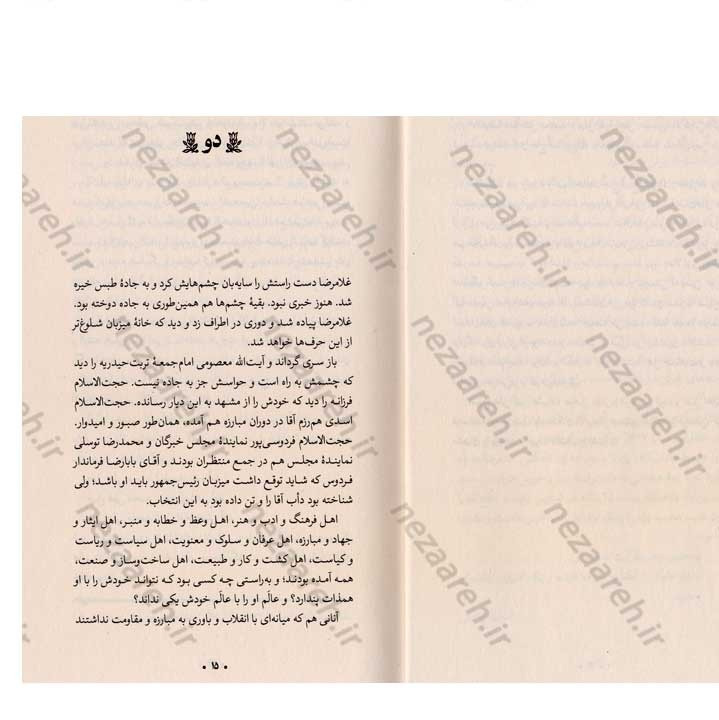 دو
غلامرضا دست راستش را سایه‌بان چشم‌هایش کرد و به جادهٔ طبس خیره
شد. هنوز خبری نبود. بقیهٔ چشم‌ها هم همین‌طوری به جاده دوخته بود.
غلامرضا پیاده شد و دوری در اطراف زد و دید که خانهٔ میزبان شلوغ‌تر
از این حرف‌ها خواهد شد.
باز سری گرداند و آیت‌الله معصومی امام‌جمعهٔ تربت‌حیدریه را دید
که چشمش به راه است و حواسش جز به جاده نیست. حجت‌الاسلام
فرزانه را دید که خودش را از مشهد به این دیار رسانده. حجت‌الاسلام
اسدی هم‌رزم آقا در دوران مبارزه هم آمده، همان‌طور صبور و امیدوار.
حجت‌الاسلام فردوسی‌پور نمایندهٔ مجلس خبرگان و محمدرضا توسلی
نمایندهٔ مجلس هم در جمع منتظران بودند و آقای بابارضا فرماندار
فردوس که شاید توقع داشت میزبان رئیس‌جمهور باید او باشد؛ ولی
شناخته بود دأب آقا را و تن داده بود به این انتخاب.
اهل فرهنگ و ادب و هنر، اهل وعظ و خطابه و منبر، اهل ایثار و
جهاد و مبارزه، اهل عرفان و سلوک و معنویت، اهل سیاست و ریاست
و کیاست، اهل کشت و کار و طبیعت، اهل ساخت‌وساز و صنعت،
همه آمده بودند؛ و به‌راستی چه کسی بود که نتواند خودش را با او
همذات بندارد؟ و عالَم او را با عالَم خودش یکی نداند؟
آنانی هم که میانه‌ای با انقلاب و باوری به مبارزه و مقاومت نداشتند
• ۱۵ •
nezaareh.ir
nezaareh.ir
nezaareh.ir
nezaareh.ir
nezaareh.ir
nezaareh.ir
nezaareh.ir
nezaareh.ir
nezaareh.ir
nezaareh.ir